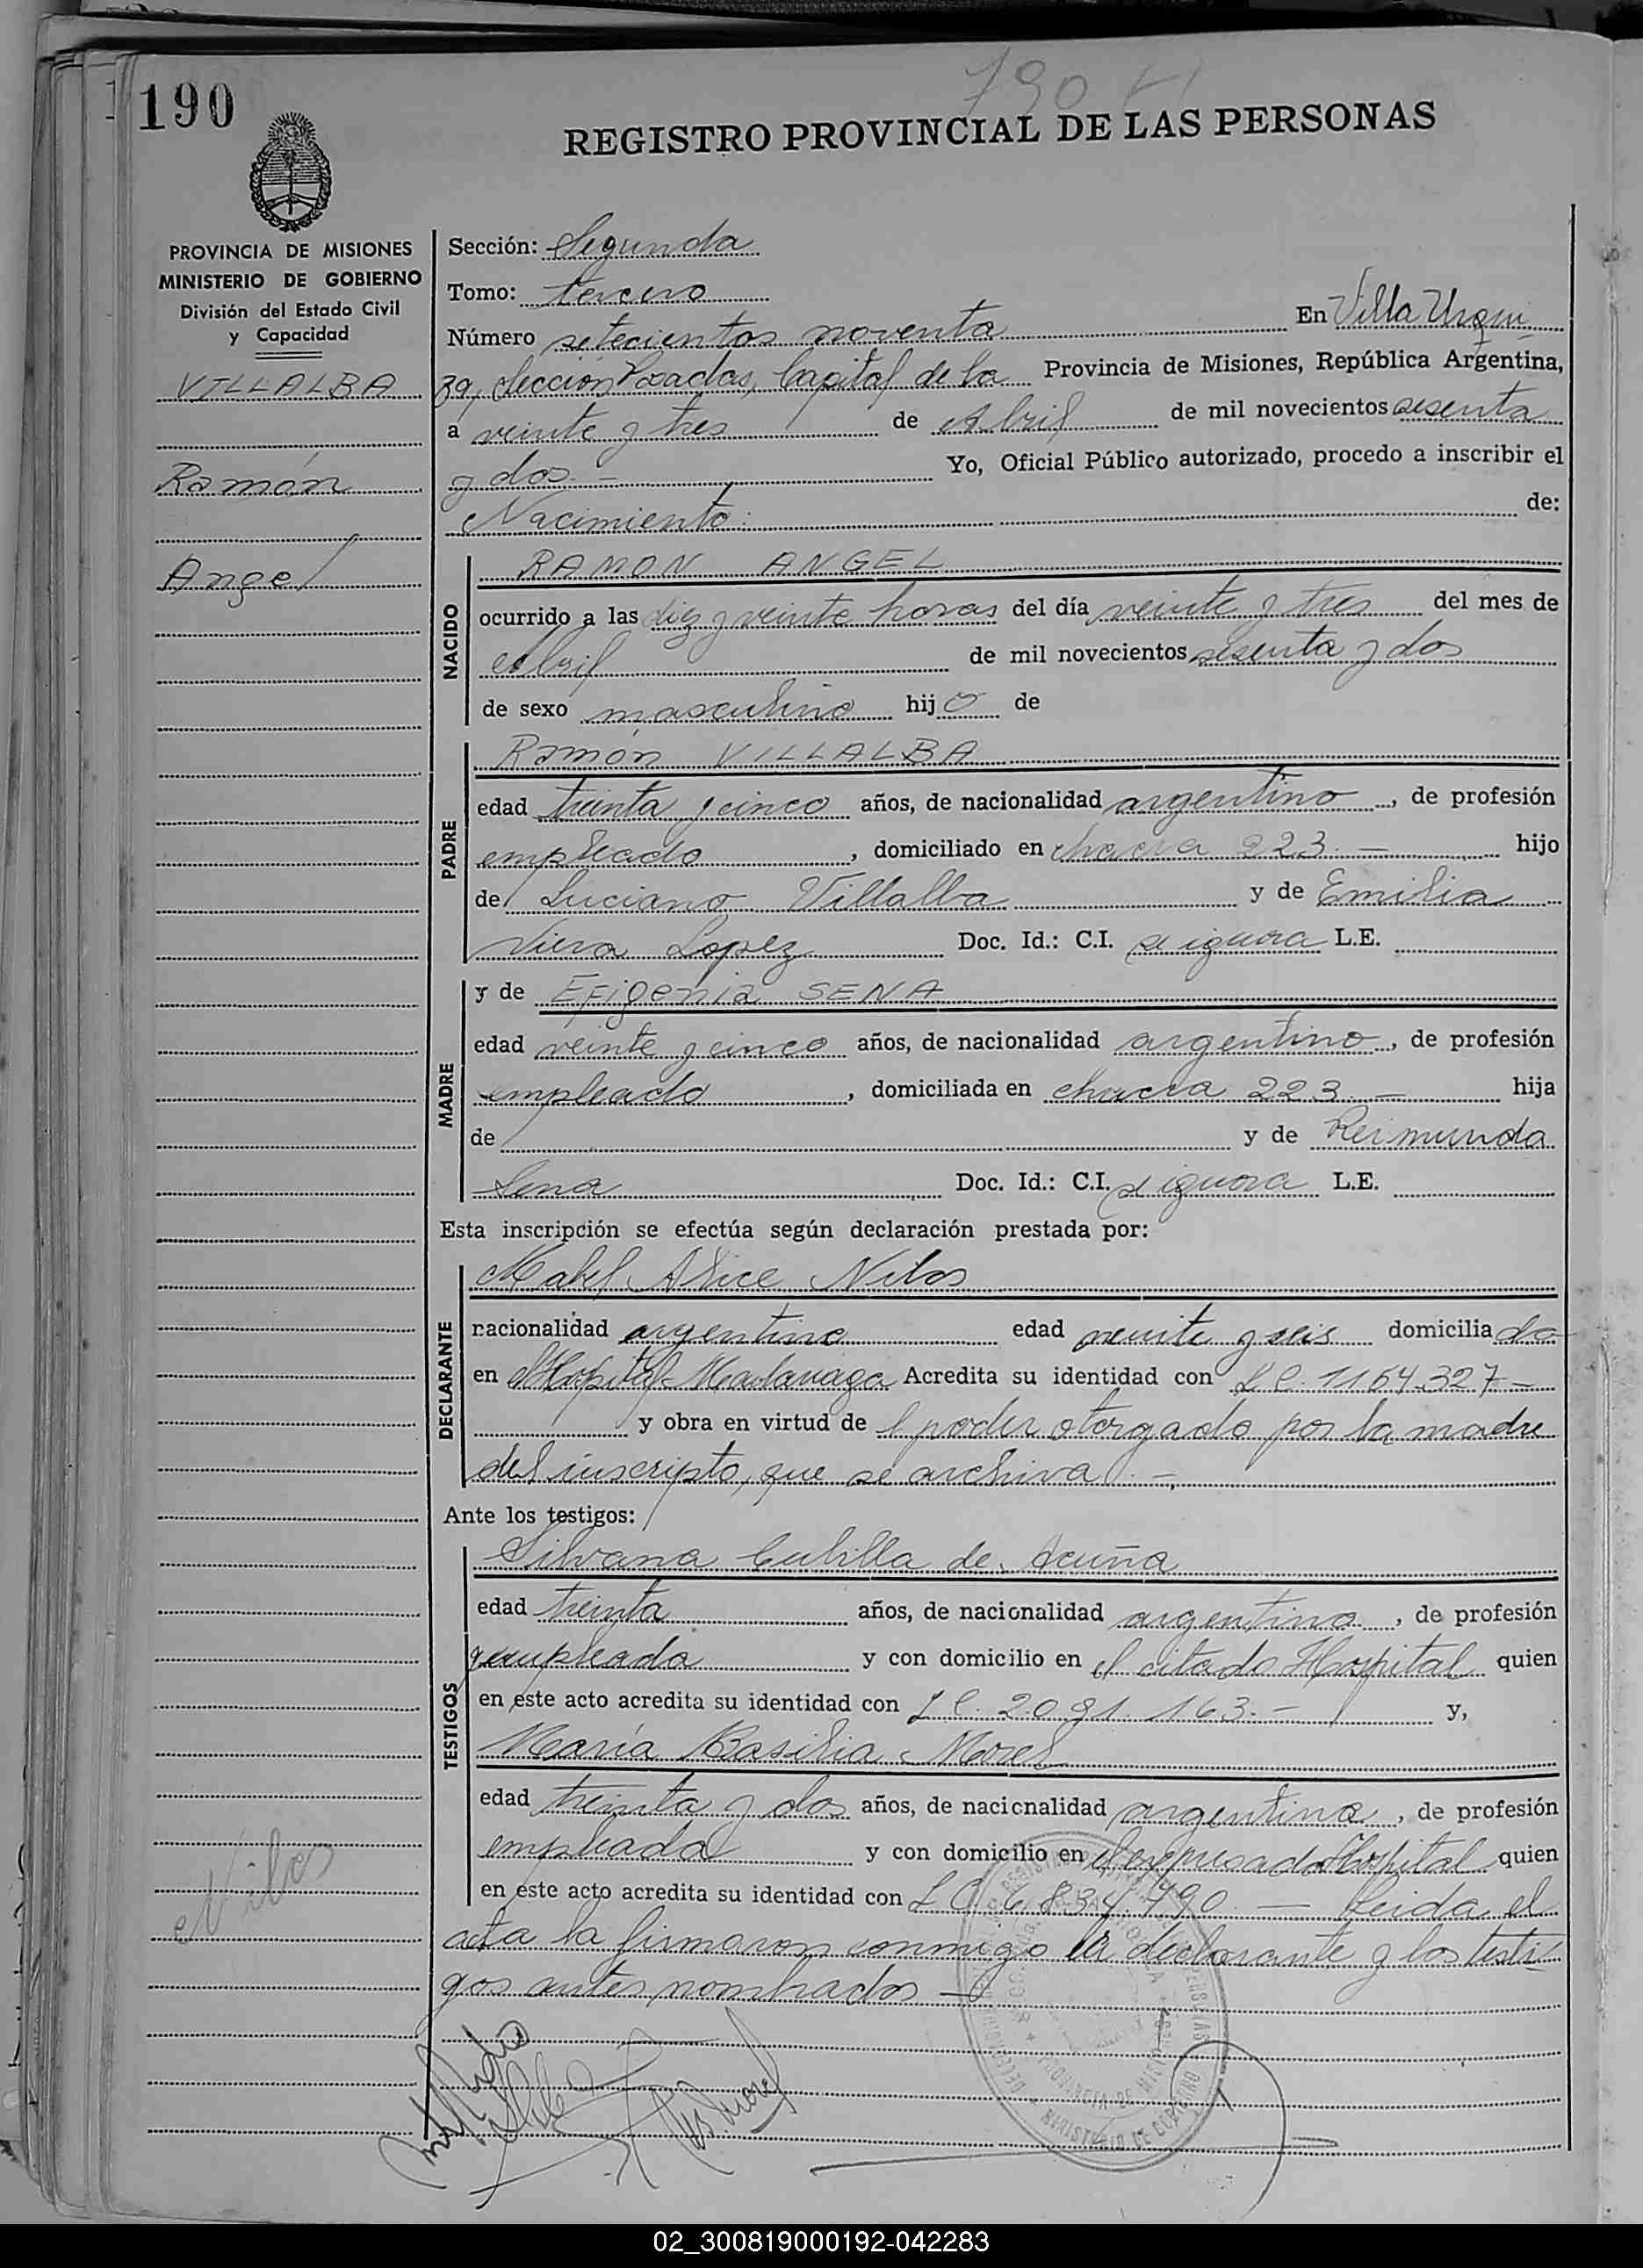 190
790
REGISTRO PROVINCIAL DE LAS PERSONAS
PROVINCIA DE MISIONES
MINISTERIO DE GOBIERNO
División del Estado Civil
y Capacidad
VILLALBA
Ramón
Angel
Sección: Segunda
Tomo: tercero
Número setecientos noventa En Villa Urqui
za, sección Posadas, Capital de la Provincia de Misiones, República Argentina,
a veinte y tres de Abril de mil novecientos sesenta
y dos.- Yo, Oficial Público autorizado, procedo a inscribir el
Nacimiento: de:
NACIDO
RAMON ANGEL
ocurrido a las diez y veinte horas del día veinte y tres del mes de
Abril de mil novecientos sesenta y dos
de sexo masculino hijo de
PADRE
Ramón VILLALBA
edad treinta y cinco años, de nacionalidad argentino, de profesión
empleado, domiciliado en chacra 223.- hijo
de Luciano Villalba y de Emilia
Viera Lopez Doc. Id.: C.I. se ignora L.E.
MADRE
y de Efigenia SENA
edad veinte y cinco años, de nacionalidad argentino, de profesión
empleado, domiciliada en chacra 223.- hija
de y de Reimunda
Sena Doc. Id.: C.I. se ignora L.E.
Esta inscripción se efectúa según declaración prestada por:
DECLARANTE
Mabel Alice Nilos
nacionalidad argentina edad veinte y seis domiciliado
en Hospital Madariaga Acredita su identidad con L.C. 1154.327-
y obra en virtud de l poder otorgado por la madre
del inscripto, que se archiva.-
Ante los testigos:
TESTIGOS
Silvana Cubilla de Acuña
edad treinta años, de nacionalidad argentina, de profesión
empleada y con domicilio en el citado Hospital quien
en este acto acredita su identidad con L.C. 2.091.163.- y,
María Basilia Morel
edad treinta y dos años, de nacionalidad argentina, de profesión
empleada y con domicilio en el expresado Hospital quien
en este acto acredita su identidad con L.C. 6.834.790.- Leida el
acta la firmaron conmigo la declarante y los testi-
gos antes nombrados -
Nilos
MINISTERIO DE GOBIERNO
02_300819000192-042283